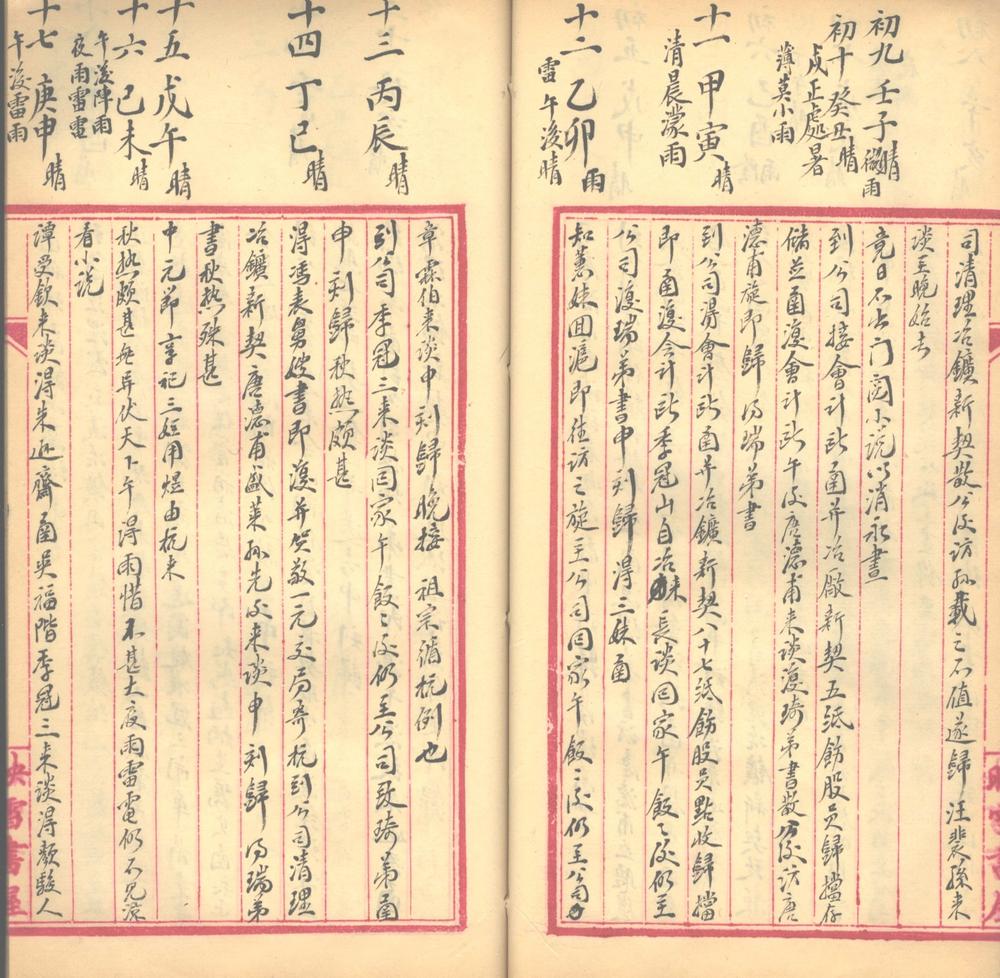 司清理冶鑛新契散公後訪孫載之不值遂歸汪裴孫來
談至晚始去
初九 壬子 晴 微雨
竟日不出门閱小說以消永晝
初十 癸丑 晴
戌正處暑
薄莫小雨
到公司接會計所函并冶廠新契五紙飭股員歸擋存
儲並函復會計所午後唐德甫來談復琦弟書散公後訪唐
德甫旋即歸得瑞弟書
十一 甲寅 晴
清晨濛雨
到公司得會計所函并冶鑛新契八十七紙飭股員點收歸擋
即函復会计所季冠山自冶來長談回家午飯飯後仍至
公司復瑞弟書申刻歸得三妹函
十二 乙卯 雨
雷 午後晴
知蕙妹回滬即往訪之旋至公司回家午飯飯後仍至公司
章霖伯来談申刻歸晚接 祖宗循杭例也
十三 丙辰 晴
到公司季冠三来談回家午飯飯後仍至公司致琦弟函
申刻歸秋热頗甚
十四 丁巳 晴
得馮表舅嫂書即復并笑敬一元交局寄杭到公司清理
冶鑛新契唐德甫盛萊孙先後来談申刻歸得瑞弟
書秋热殊甚
十五 戊午 晴
中元節享祀三姪用煜由杭来
十六 己未 晴
午後陣雨
夜雨雷電
秋热頗甚無异伏天下午得雨惜不甚大夜雨雷電仍不見涼
看小説
十七 庚申 晴
午後雷雨
譚受欽来談得朱遜齋函吳福階季冠三来談得顏駿人
映雪書屋